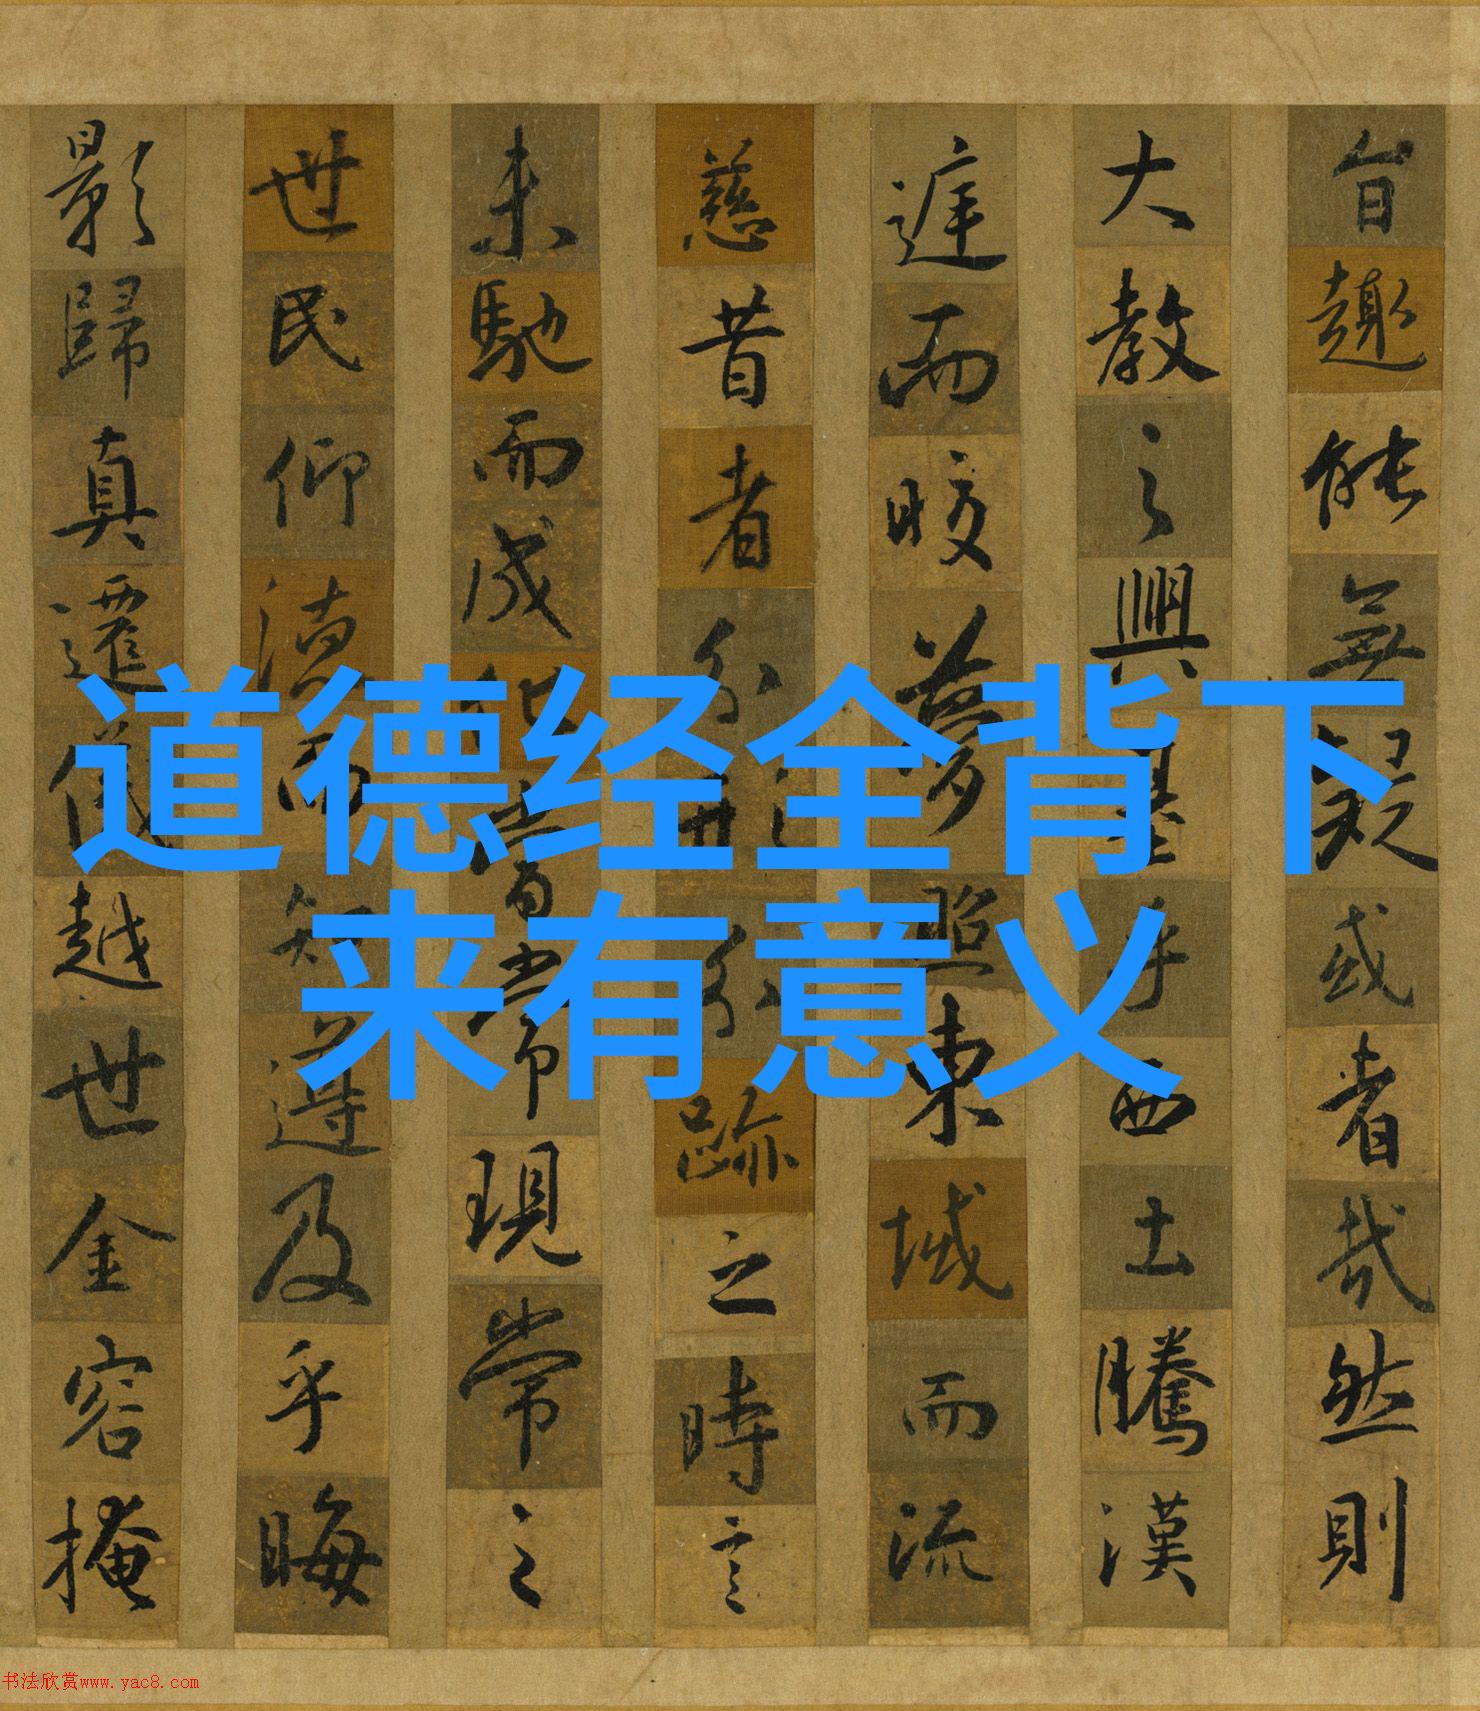 旨趣能無疑或者哉然則
大教之興基乎西土騰漢
庭而皎夢照東域而流
慈昔者分形分跡之時言
未馳而成化當常現常之
世民仰德而知遵及乎晦
影歸真遷儀越世金容掩
道德经全背下
来有意义
书法欣赏www.yac8.com